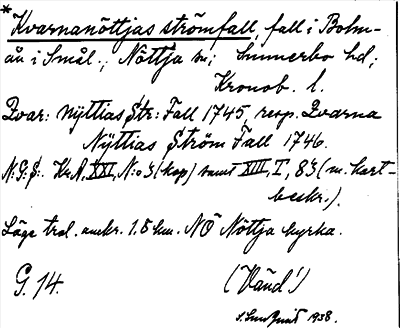 * Kvarnanöttjas strömfall, fall i Bolm-
ån i Smål.; Nöttja sn; Sunnerbo hd;
Kronob. l.
Qvar: nÿttias Str: Fall 1745, resp. Qvarna
Nÿttias Ström Fall 1746.
N: G: S:. Kr. A. XXI, N:o 3 (kop) samt XIII, I, 83 (m. kart-
beskr.).
Läge trol. omkr. 1.5 km. NÖ Nöttja kyrka.
G. 14.
(Vänd!)
1938.